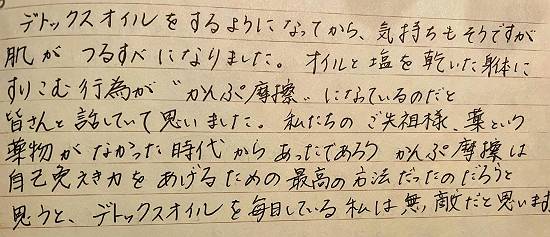 デトックスオイルをするようになってから、気持ちもそうですが
肌がつるすべになりました。オイルと塩を乾いた身体に
すりこむ行為が“かんぷ摩擦”になっているのだと
皆さんと話していて思いました。私たちのご先祖様、薬という
薬物がなかった時代からあったであろうかんぷ摩擦は
自己免えき力をあげるための最高の方法だったのだろうと
思うと、デトックスオイルを毎日している私は無敵だと思います